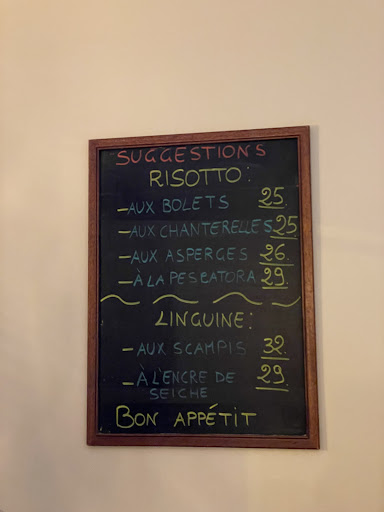 SUGGESTIONS
RISOTTO:
- AUX BOLETS 25.
- AUX CHANTERELLES 25
- AUX ASPERGES 26.
- À LA PESCATORA 29.
LINGUINE:
- AUX SCAMPIS 32.
- À L'ENCRE DE 29.
SEICHE
BON APPÉTIT